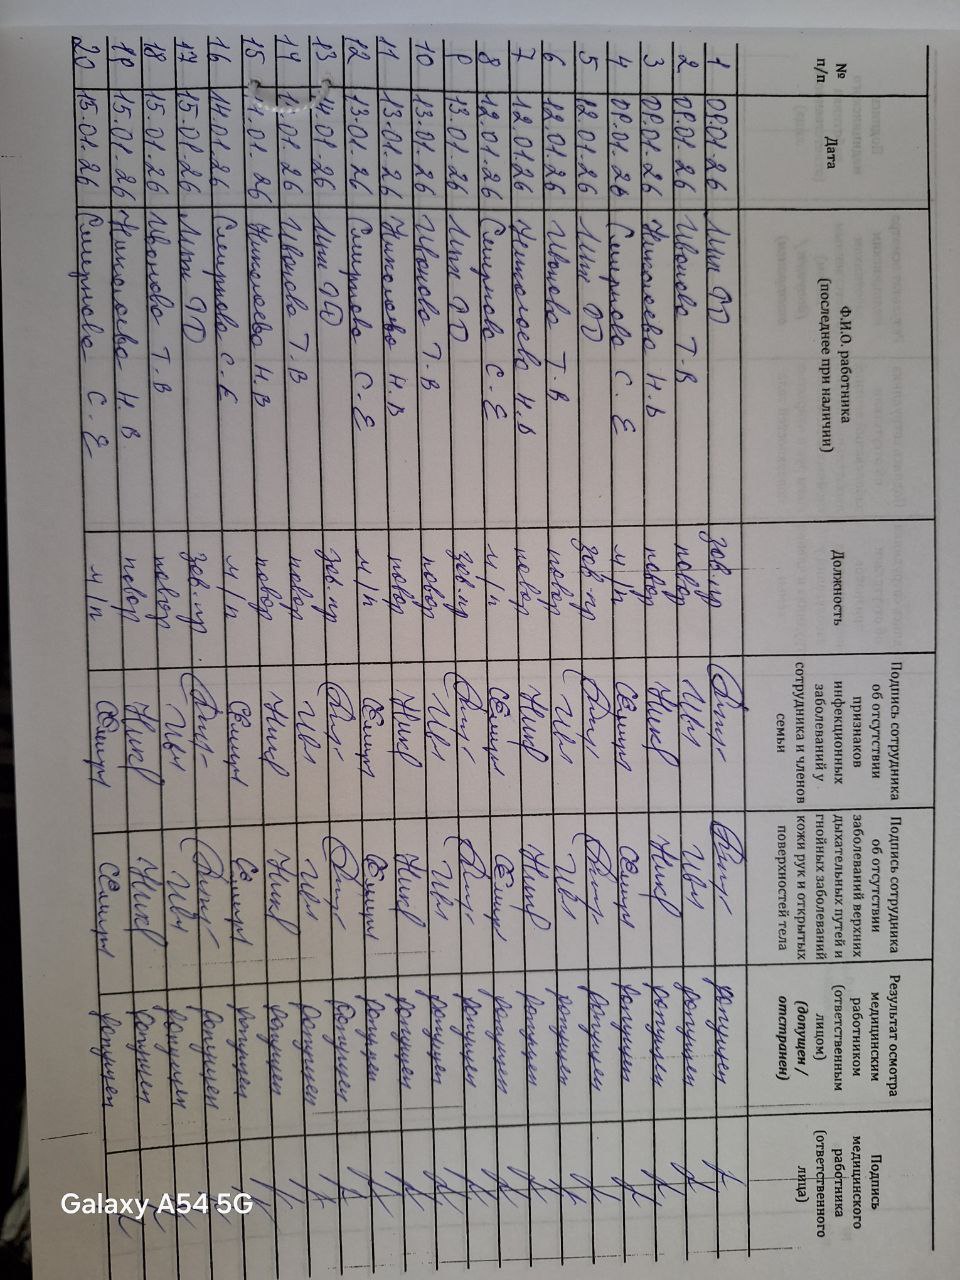 № п/п
Дата
Ф.И.О. работника
(последнее при наличии)
Должность
Подпись сотрудника
об отсутствии
признаков
инфекционных
заболеваний у
сотрудника и членов
семьи
Подпись сотрудника
об отсутствии
заболеваний верхних
дыхательных путей и
гнойных заболеваний
кожи рук и открытых
поверхностей тела
Результат осмотра
медицинским
работником
(ответственным
лицом)
(допущен /
отстранен)
Подпись
медицинского
работника
(ответственного
лица)
1 09.01.26 зав.пр допущен
2 09.01.26 Иванова Т.В повар Ив допущен
3 09.01.26 Николаева Н.В повар Ник Ник допущен
4 09.01.26 Смирнова С.Е м/п Смирн Смирн допущен
5 12.01.26 зав.пр допущен
6 12.01.26 Иванова Т.В повар допущен
7 12.01.26 Николаева Н.В повар Ник Ник допущен
8 12.01.26 Смирнова С.Е м/п Смирн Смирн допущен
9 13.01.26 зав.пр допущен
10 13.01.26 Иванова Т.В повар допущен
11 13.01.26 Николаева Н.В повар Ник Ник допущен
12 13.01.26 Смирнова С.Е м/п Смирн Смирн допущен
13 14.01.26 зав.пр допущен
14 14.01.26 Иванова Т.В повар допущен
15 14.01.26 Николаева Н.В повар Ник Ник допущен
16 14.01.26 Смирнова С.Е м/п Смирн Смирн допущен
17 15.01.26 зав.пр. допущен
18 15.01.26 Иванова Т.В повар допущен
19 15.01.26 Николаева Н.В повар Ник Ник допущен
20 15.01.26 Смирнова С.Е м/п Смирн Смирн допущен
Galaxy A54 5G